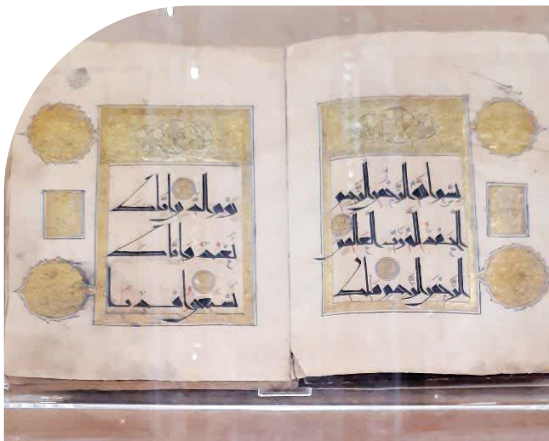 بسم الله الرحمن الرحيم
الحمد لله رب العلمين
الرحمن الرحيم ملك
يوم الدين اياك
نعبد واياك
نستعين اهدنا